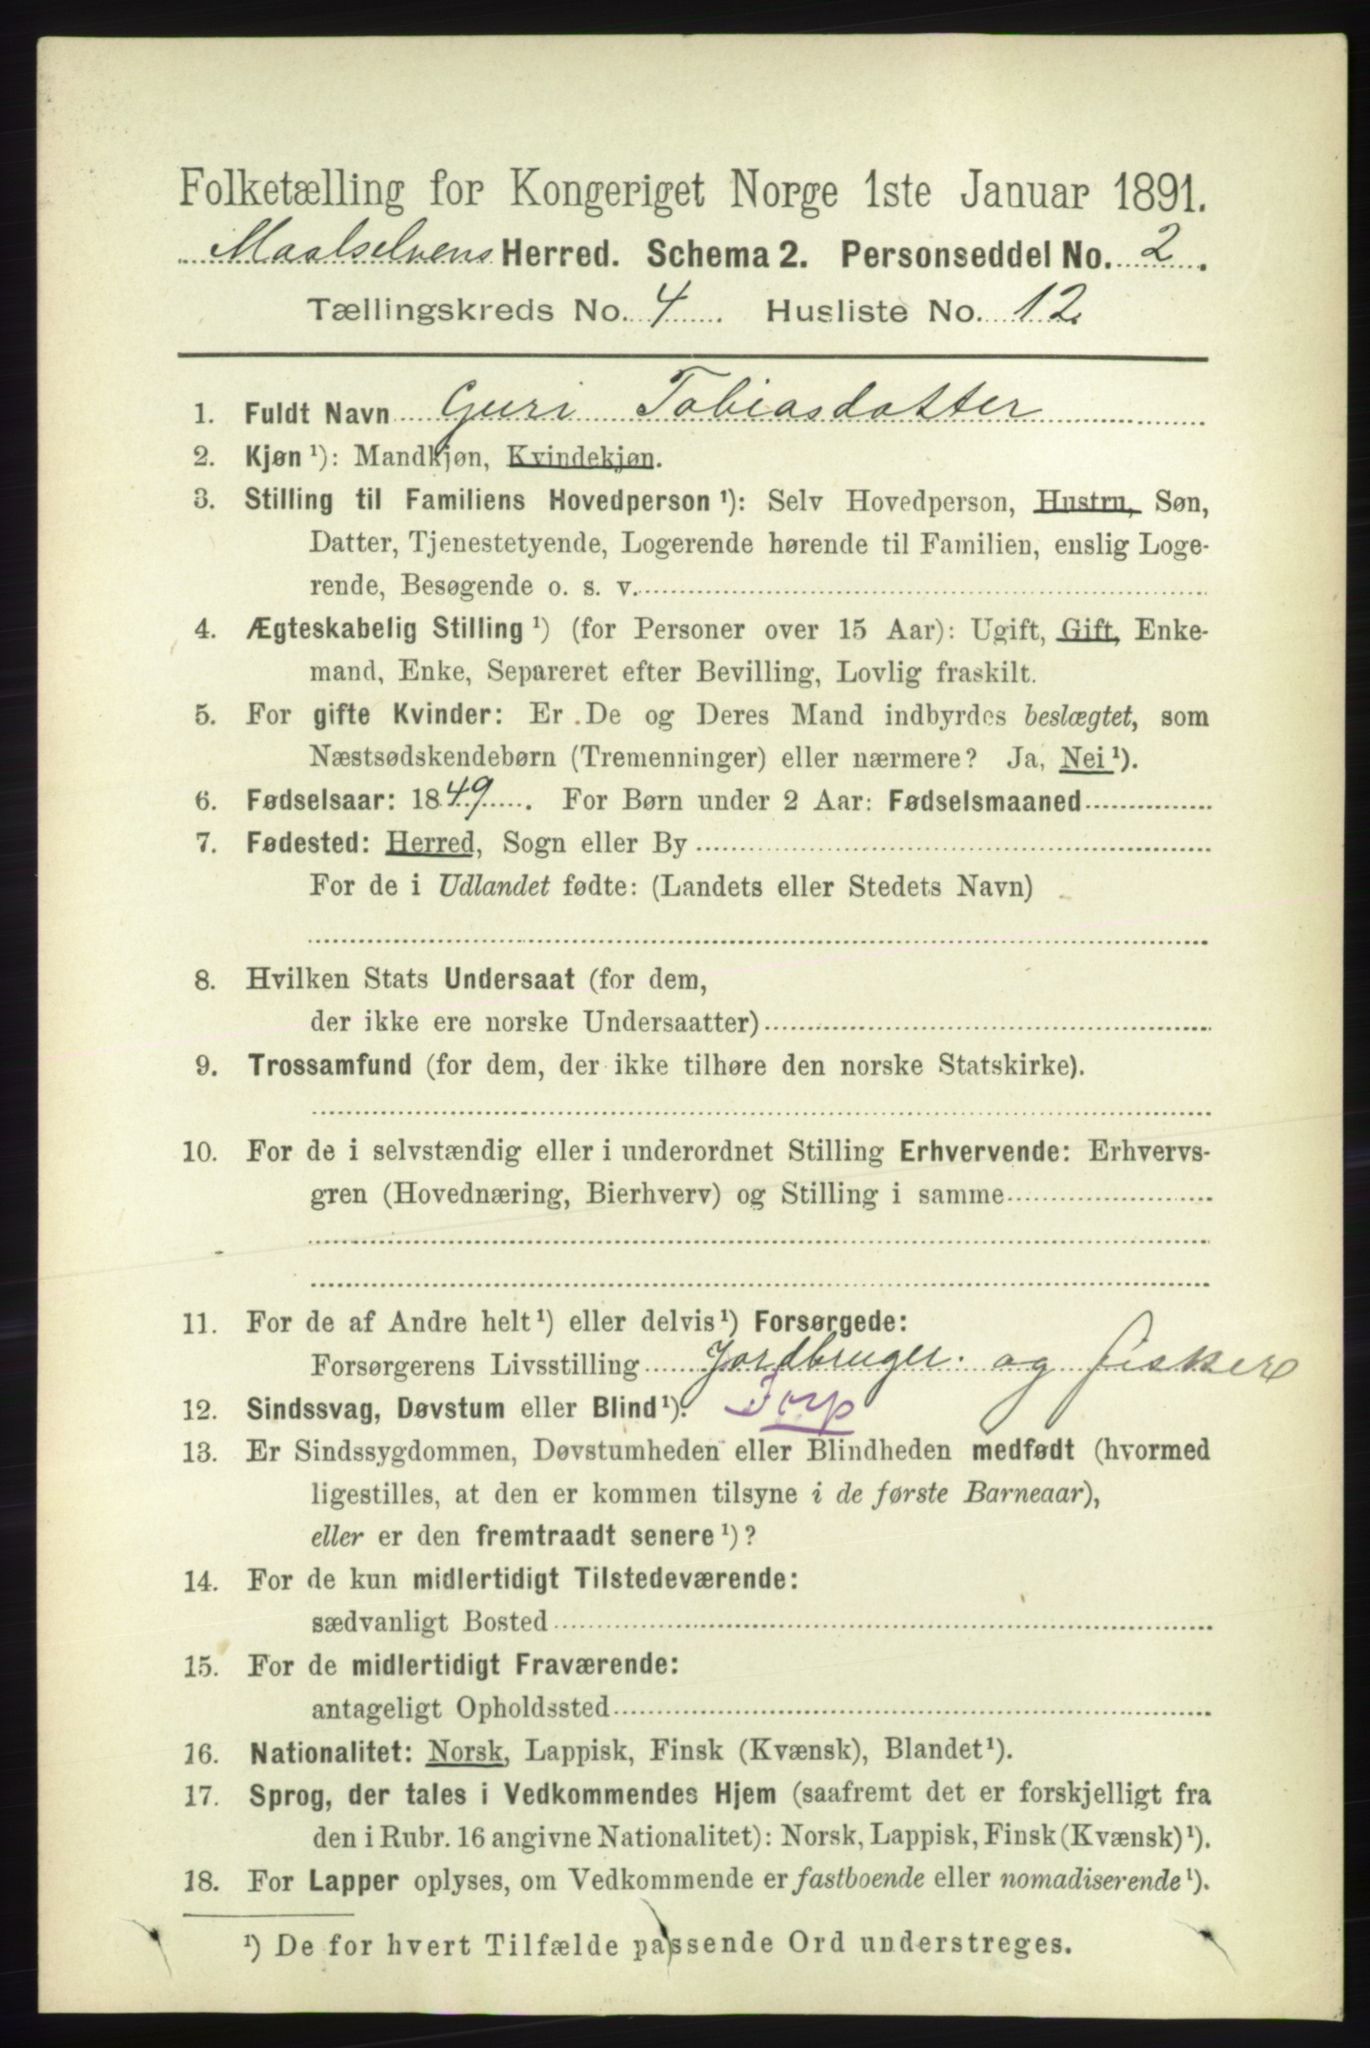 Folketælling for Kongeriget Norge 1ste Januar 1891.
Maalselvens Herred. Schema 2. Personseddel No. 2.
Tællingskreds No. 4. Husliste No. 12.
1. Fuldt Navn Guri Tobiasdatter
2. Kjøn ¹): Mandkjøn, Kvindekjøn.
3. Stilling til Familiens Hovedperson ¹): Selv Hovedperson, Hustru, Søn,
Datter, Tjenestetyende, Logerende hørende til Familien, enslig Loge-
rende, Besøgende o. s. v.
4. Ægteskabelig Stilling ¹) (for Personer over 15 Aar): Ugift, Gift, Enke-
mand, Enke, Separeret efter Bevilling, Lovlig fraskilt.
5. For gifte Kvinder: Er De og Deres Mand indbyrdes beslægtet, som
Næstsødskendebørn (Tremenninger) eller nærmere? Ja, Nei ¹).
6. Fødselsaar: 1849. For Børn under 2 Aar: Fødselsmaaned
7. Fødested: Herred, Sogn eller By
For de i Udlandet fødte: (Landets eller Stedets Navn)
8. Hvilken Stats Undersaat (for dem,
der ikke ere norske Undersaatter)
9. Trossamfund (for dem, der ikke tilhøre den norske Statskirke).
10. For de i selvstændig eller i underordnet Stilling Erhvervende: Erhvervs-
gren (Hovednæring, Bierhverv) og Stilling i samme
11. For de af Andre helt ¹) eller delvis ¹) Forsørgede:
Forsørgerens Livsstilling Jordbruger og fisker
12. Sindssvag, Døvstum eller Blind ¹).
13. Er Sindssygdommen, Døvstumheden eller Blindheden medfødt (hvormed
ligestilles, at den er kommen tilsyne i de første Barneaar),
eller er den fremtraadt senere ¹)?
14. For de kun midlertidigt Tilstedeværende:
sædvanligt Bosted
15. For de midlertidigt Fraværende:
antageligt Opholdssted
16. Nationalitet: Norsk, Lappisk, Finsk (Kvænsk), Blandet ¹).
17. Sprog, der tales i Vedkommendes Hjem (saafremt det er forskjelligt fra
den i Rubr. 16 angivne Nationalitet): Norsk, Lappisk, Finsk (Kvænsk) ¹).
18. For Lapper oplyses, om Vedkommende er fastboende eller nomadiserende ¹).
¹) De for hvert Tilfælde passende Ord understreges.